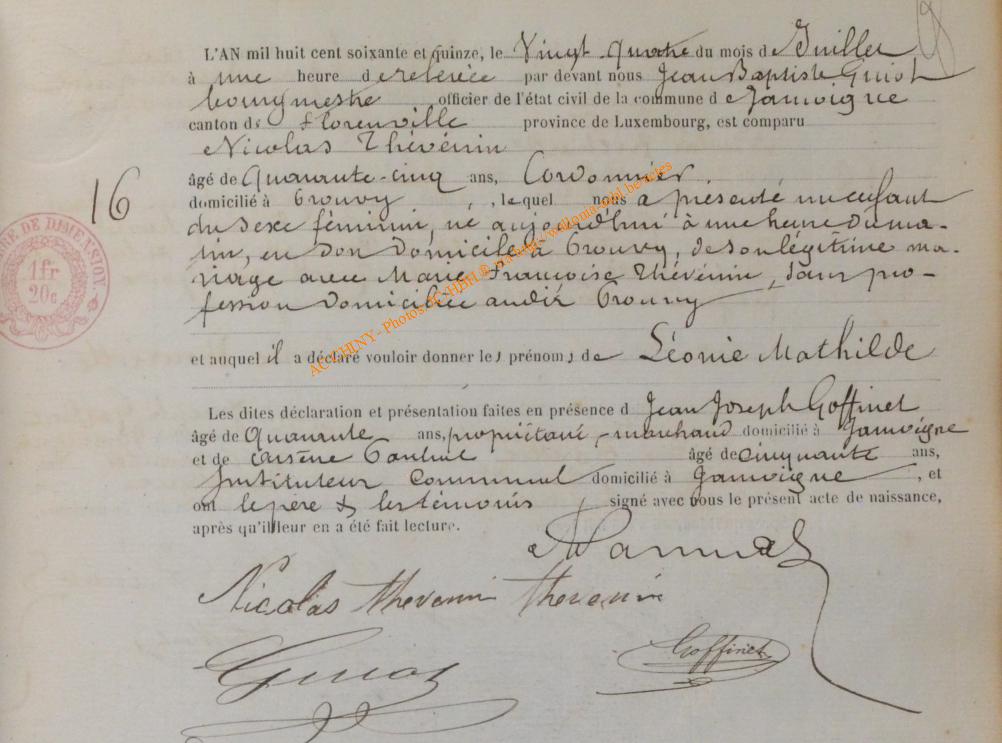 L'AN mil huit cent soixante et quinze, le Vingt-quatre du mois de Juillet
à une heure de relevée par devant nous Jean Baptiste Guiot
bourgmestre officier de l'état civil de la commune de Jamoigne
canton de Florenville province de Luxembourg, est comparu
Nicolas Thévenin
âgé de Quarante-cinq ans, Cordonnier,
domicilié à Prouvy, lequel nous a présenté un enfant
du sexe féminin, né aujourd'hui à une heure du ma-
tin, en son domicile à Prouvy, de son légitime ma-
riage avec Marie Françoise Thévenin, sans pro-
fession domiciliée audit Prouvy
16
TIMBRE DE DIMENSION.
1fr
20c
et auquel il a déclaré vouloir donner les prénoms de Léonie Mathilde
Les dites déclaration et présentation faites en présence de Jean Joseph Goffinet
âgé de Quarante ans, propriétaire, marchand domicilié à Jamoigne
et de Arsène âgé de cinquante ans,
Instituteur Communal domicilié à Jamoigne, et
ont le père & les témoins signé avec nous le présent acte de naissance,
après qu'il leur en a été fait lecture.
Nicolas thevenin thevenin
Guiot
Goffinet